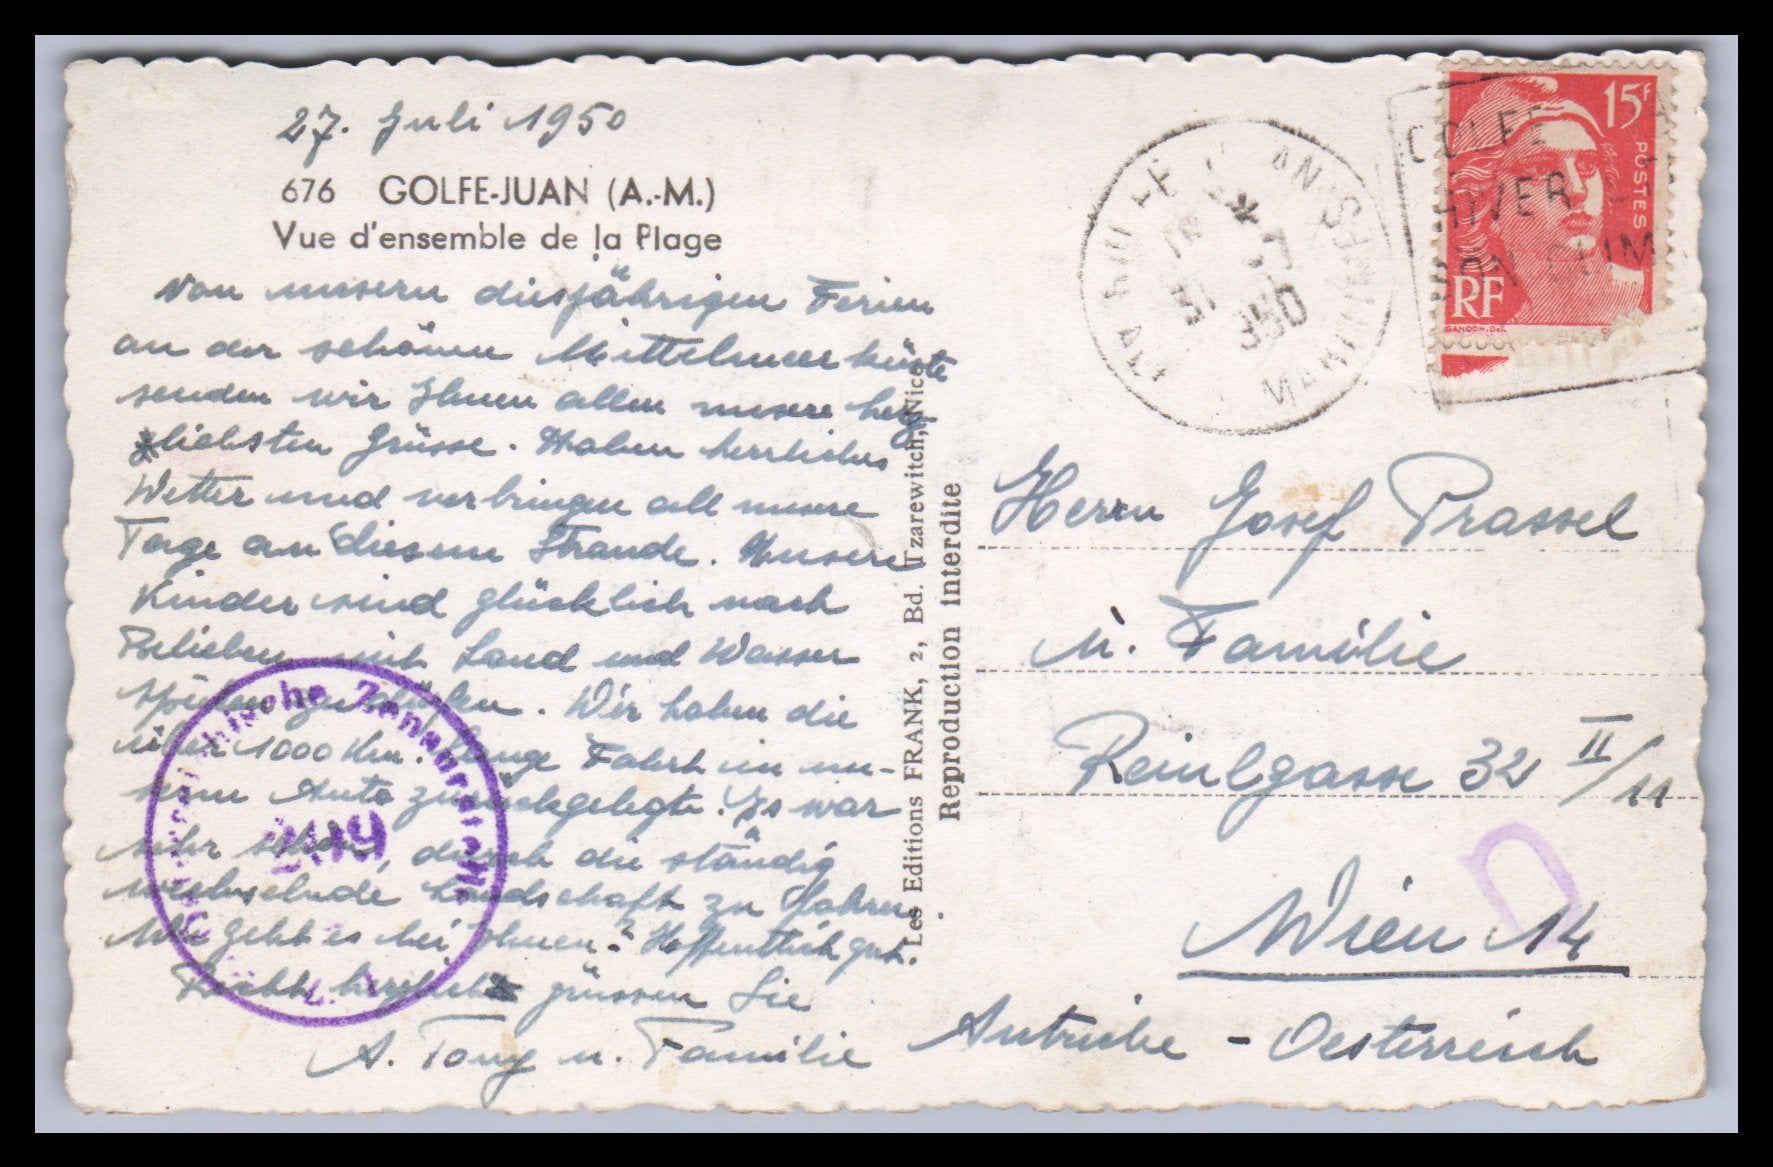 27. Juli 1950
676 GOLFE-JUAN (A.-M.)
Vue d'ensemble de la Plage
Von unsern diesjährigen Ferien
an der schönen Mittelmeerküste
senden wir Ihnen allen unsere herz
lichsten Grüsse. Haben herrliches
Wetter und verbringen all unsere
Tage an diesem Strande. Unsere
Kinder sind glücklich nach
Belieben mit Sand und Wasser
spielen zu dürfen. Wir haben die
über 1000 Km. lange Fahrt in un-
serm Auto zurückgelegt. Es war
sehr schön, durch die ständig
wechselnde Landschaft zu fahren.
Wie geht es bei Ihnen? Hoffentlich gut.
Recht herzlich grüssen Sie
A. Tony u. Familie
Österreichische Zensurstelle
Les Editions FRANK, 2, Bd. Tzarewitch, Nice
Reproduction interdite
31 7
1950
MARITIMES
GOLFE
HIVER
BON CLIM
15F
POSTES
RF
GANDON.Del.
Herrn Josef Prassel
u. Familie
Reinlgasse 32 II/11
Wien 14
Autriche - Oesterreich